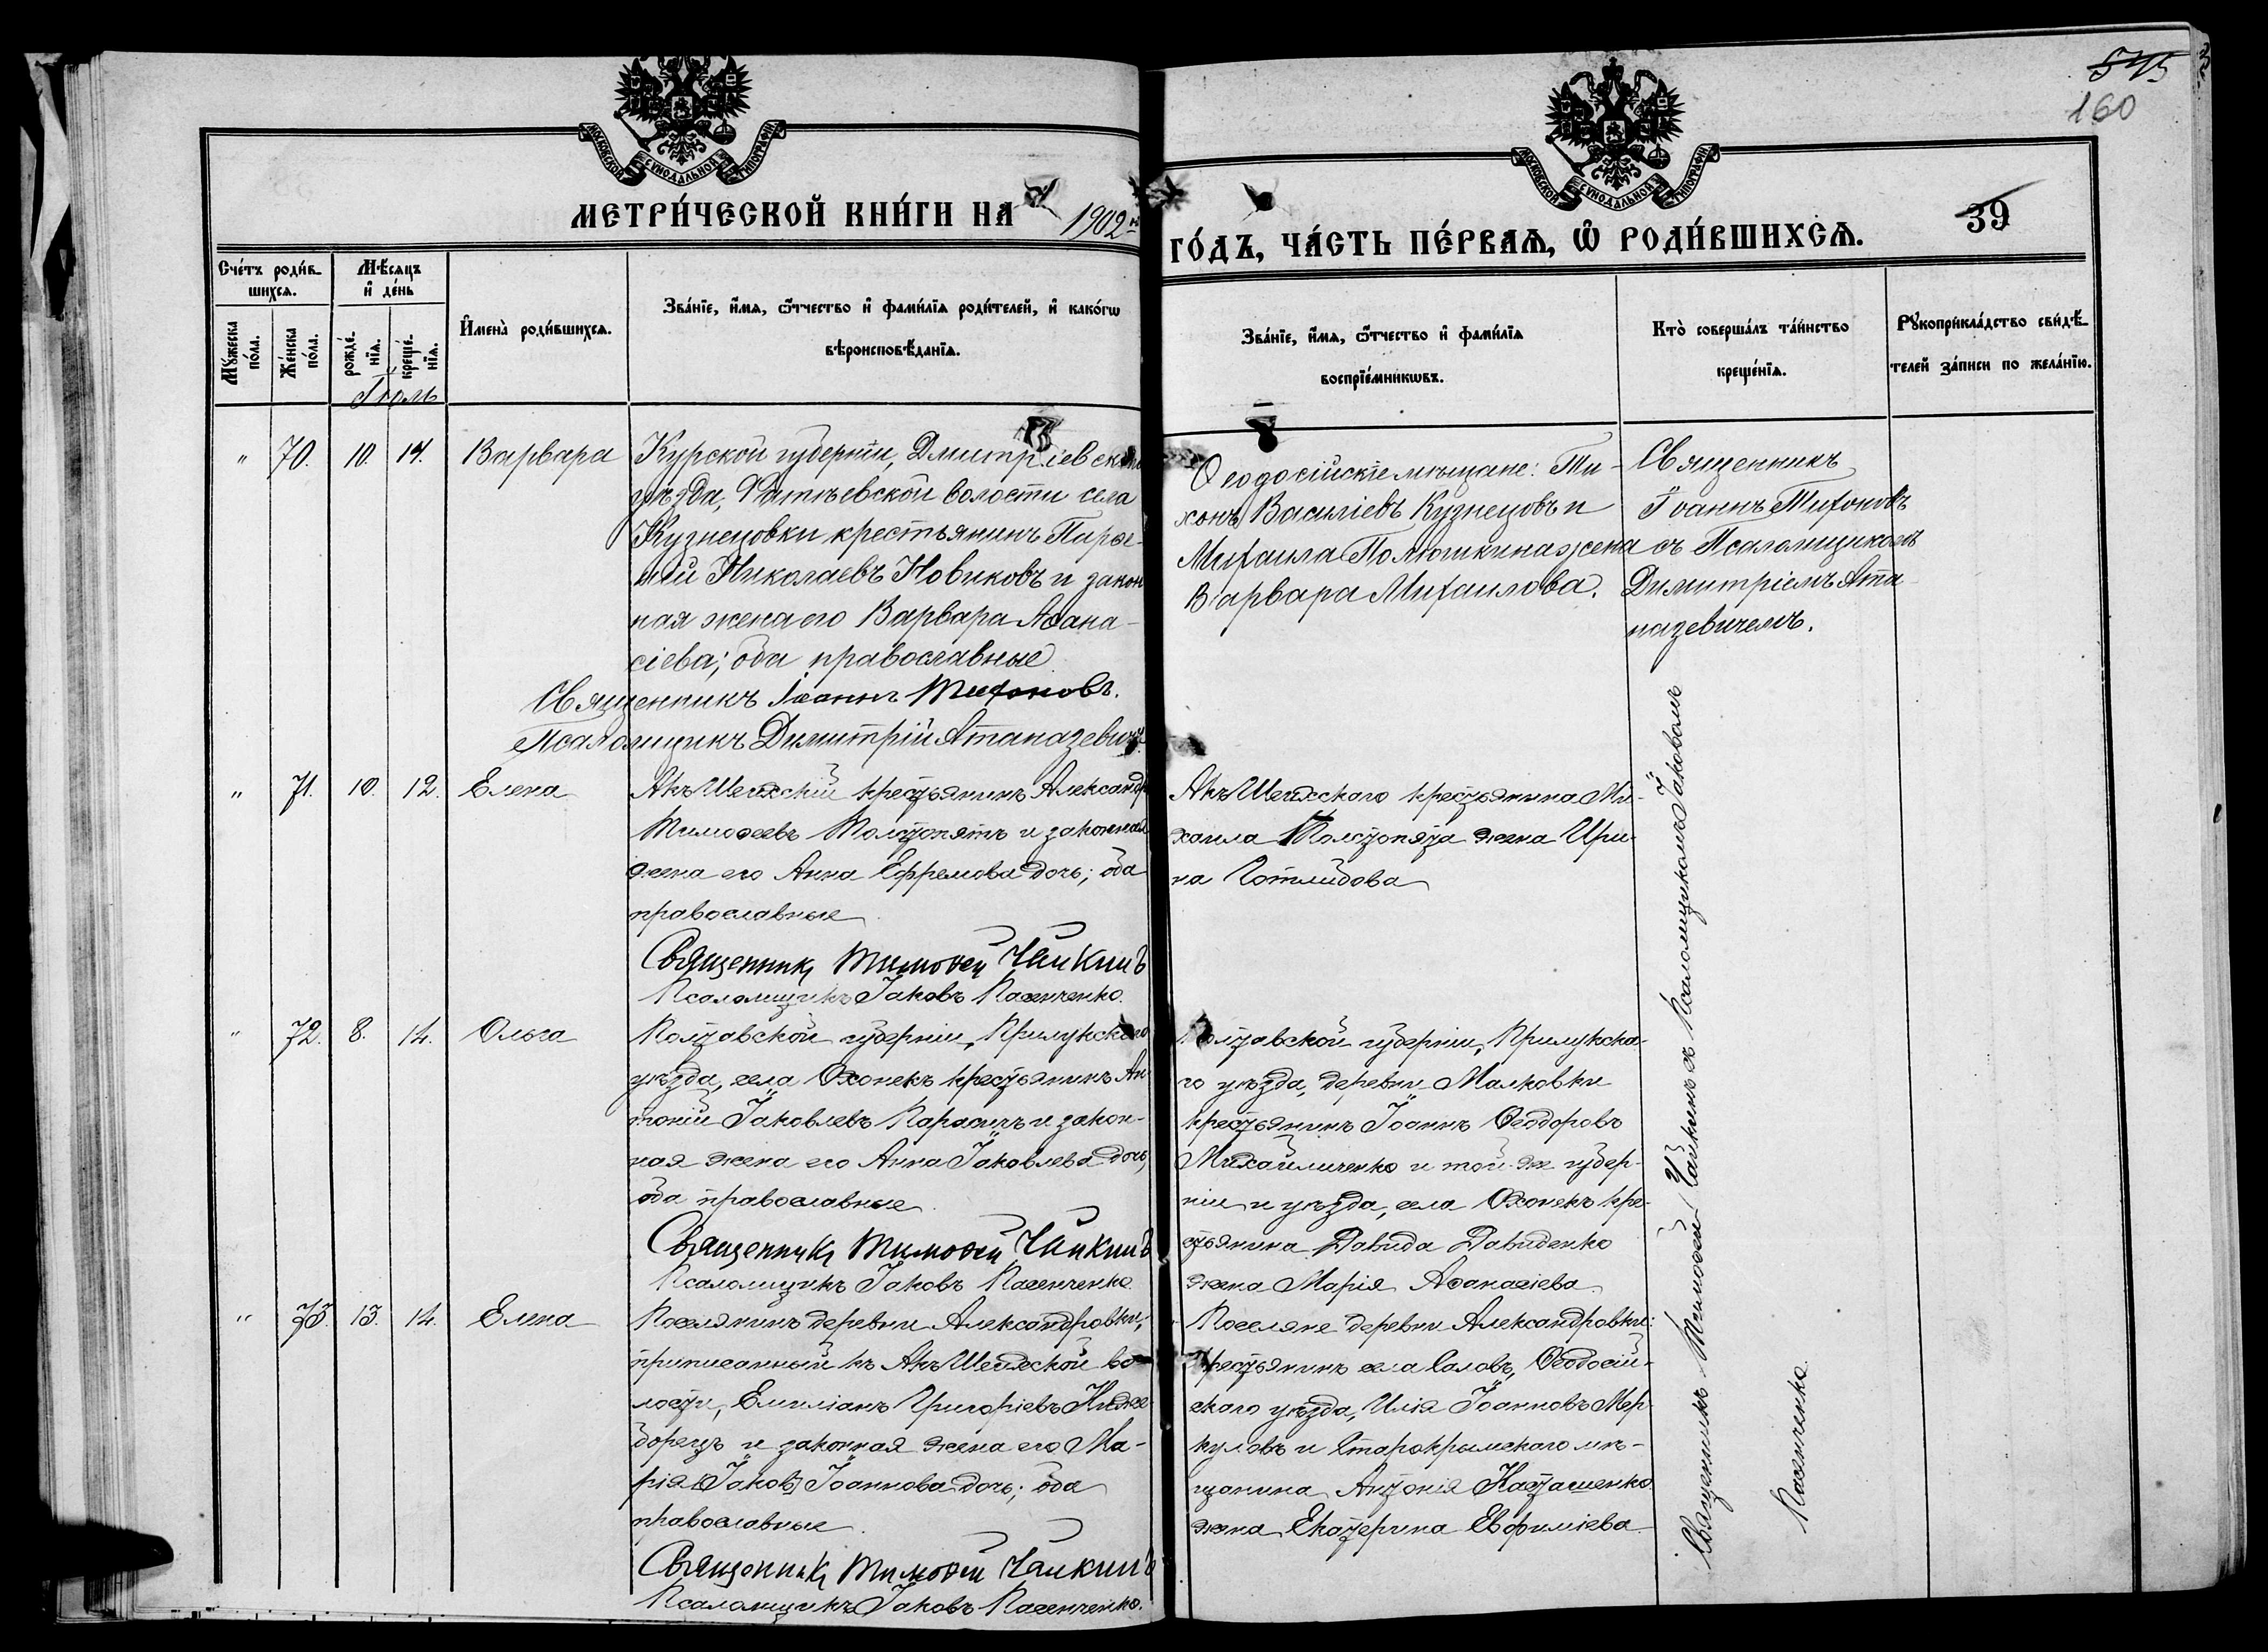 545
160
МОСКОВСКОЙ СѴНОДАЛЬНОЙ ТИПОГРАФІИ
МОСКОВСКОЙ СѴНОДАЛЬНОЙ ТИПОГРАФІИ
МЕТРИ́ЧЕСКОЙ КНИ́ГИ НА 1902й
ГО́ДЪ, ЧА́СТЬ ПЕ́РВАѦ, Ѽ РОДИ́ВШИХСѦ.
39
Сче́тъ роди́в-
шихсѧ.
Мѣ́сѧцъ
и҆ де́нь
Мꙋ́жеска
по́ла.
Же́нска
по́ла.
рожде́-
нїѧ.
креще́-
нїѧ.
Іюль
И҆мена̀ роди́вшихсѧ.
Зва́нїе, и҆́мѧ, ѻ҆́тчество и҆ фами́лїѧ роди́телей, и҆ како́гѡ
вѣроисповѣ́данїѧ.
Зва́нїе, и҆́мѧ, ѻ҆́тчество и҆ фами́лїѧ
воспрїе́мникѡвъ.
Кто̀ соверша́лъ та́инство
креще́нїѧ.
Рꙋкоприкла́дство свидѣ́-
телей за́писи по жела́нїю.
" 70. 10. 14. Варвара
Курской губерніи, Дмитріевскаго
уѣзда, Фатѣевской волости села
Кузнецовки крестьянинъ Парѳе-
ній Николаевъ Новиковъ и закон
ная жена его Варвара Аѳана-
сіева; оба православные
Священникъ Іоаннъ Тихоновъ.
Псаломщикъ Димитрій Атаназевичъ.
Ѳеодосійскіе мѣщане: Ти-
хонъ Василіевъ Кузнецовъ и
Михаила Полюшкина жена
Варвара Михаилова.
Священникъ
Іоаннъ Тихоновъ
съ Псаломщикомъ
Димитріемъ Ата
назевичемъ.
" 71. 10. 12. Елена
Акъ Шеихскій крестьянинъ Александръ
Тимоѳеевъ Толстопятъ и законная
жена его Анна Ефремова дочь; оба
православные
Священникъ Тимоѳей Чайкинъ
Псаломщикъ Іаковъ Пасенченко.
Акъ Шеихскаго крестьянина Ми-
хаила Толстопята жена Ири-
на Готлибова
" 72. 8. 14. Ольга
Полтавской губерніи, Прилукскаго
уѣзда, села Охонекъ крестьянинъ Ан-
тоній Іаковлевъ Карасичъ и закон-
ная жена его Анна Іаковлева дочь,
оба православные
Священникъ Тимоѳей Чайкинъ
Псаломщикъ Іаковъ Пасенченко
Полтавской губерніи, Прилукска-
го уѣзда, деревни Малковки
крестьянинъ Іоаннъ Ѳеодоровъ
Михайличенко и той-же губер-
ніи и уѣзда, села Охонекъ кре-
стьянина Давида Давиденко
жена Марія Аѳанасіева
" 73. 13. 14. Елена
Поселянинъ деревни Александровки,
приписанный къ Акъ Шеихской во-
лости, Емиліанъ Григоріевъ Ниже
борецъ и законная жена его Ма-
рія [Іаков] Іоаннова дочь; оба
православные
Священникъ Тимоѳей Чайкинъ
Псаломщикъ Іаковъ Пасенченко.
Поселяне деревни Александровки:
крестьянинъ села Саловъ, Ѳеодосій-
скаго уѣзда, Илія Іоанновъ Мер-
куловъ и Старокрымскаго мѣ-
щанина Антонія Касташенко
жена Екатерина Евѳиміева
Священникъ Тимоѳей Чайкинъ съ Псаломщикомъ Іаковомъ
Пасенченко.